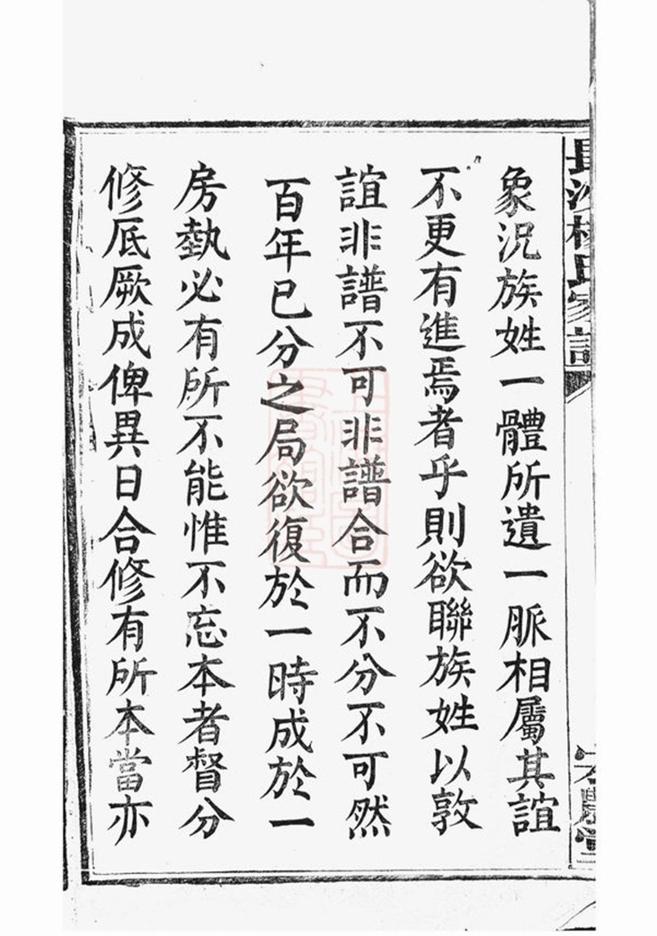 長沙楊氏家譜
象況族姓一體所遺一脈相屬其誼
不更有進焉者乎則欲聯族姓以敦
誼非譜不可非譜合而不分不可然
百年已分之局欲復於一時成於一
房埶必有所不能惟不忘本者督分
修厎厥成俾異日合修有所本當亦